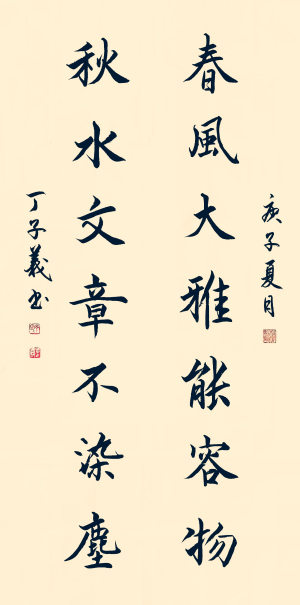 庚子夏月
春風大雅能容物
秋水文章不染塵
丁子義书